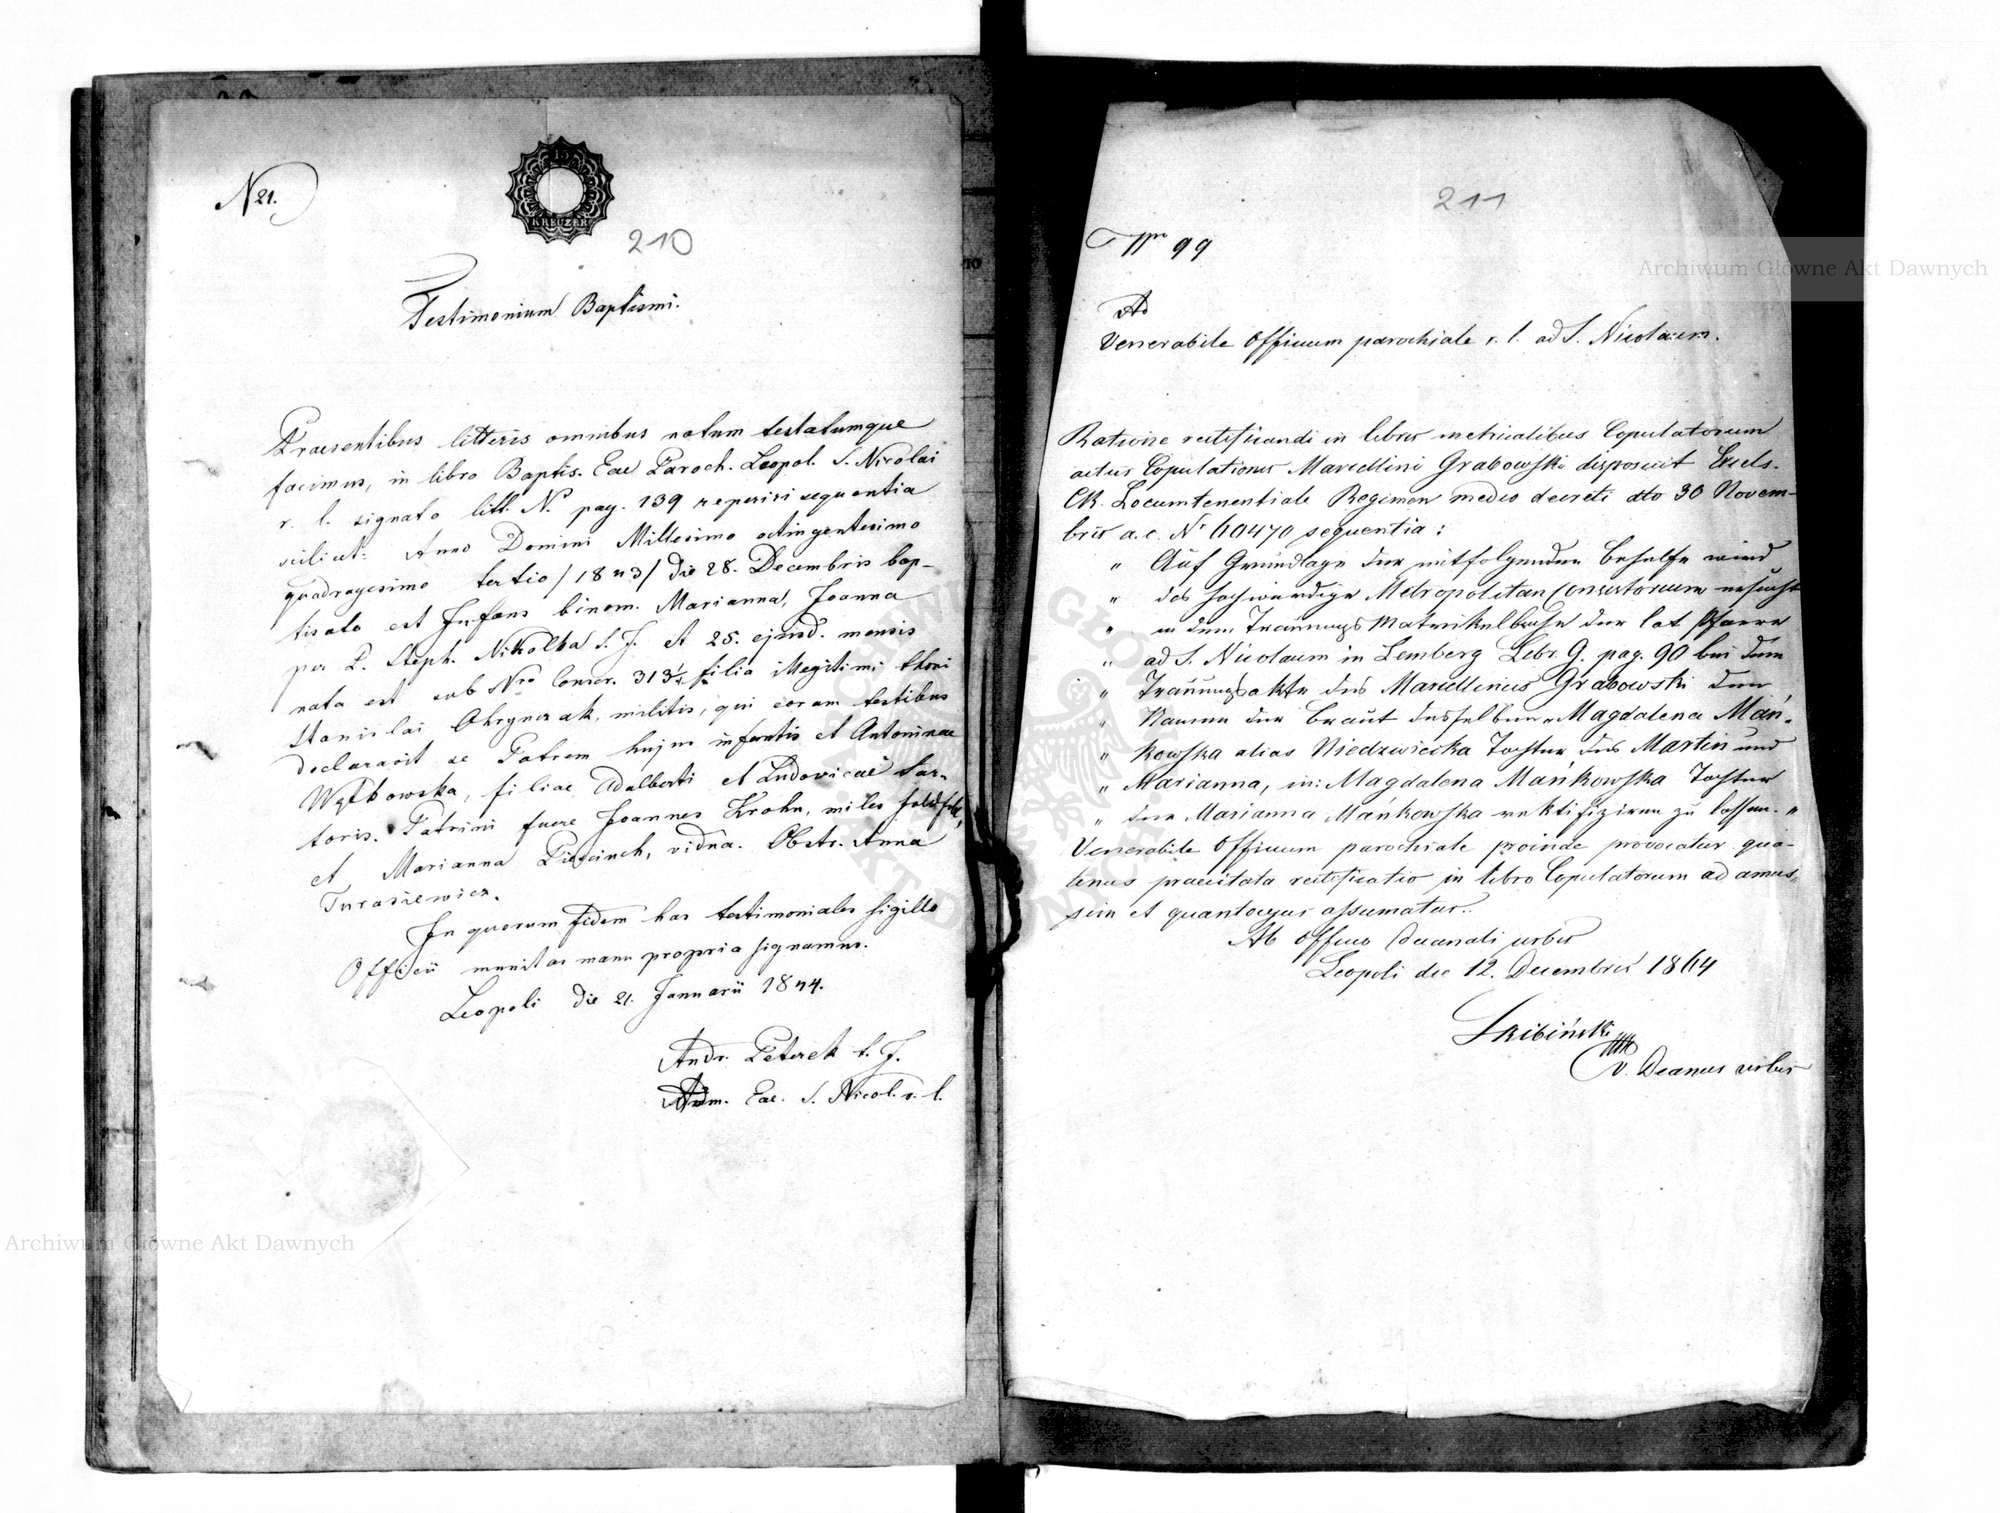 N 21.
15
KREUZER
210
Testimonium Baptismi.
Praesentibus litteris omnibus notum testatumque
facimus, in libro Baptis. Eae Paroch. Leopol. S. Nicolai
r. l. signato litt. N. pag. 139 reperiri sequentia
scilicet: Anno Domini Millesimo octingentesimo
quadragesimo tertio /1843/ die 28. Decembris bap-
tisata est Infans binom. Marianna, Joanna
per P. Steph. Nikolba S. J. et 25. ejusd. mensis
nata est sub Nro Conscr. 313 1/4 filia illegitimi thori
Stanislai Ohrynczak, militis, qui coram testibus
declaravit se Patrem hujus infantis et Antoninae
Wątkowska, filiae Adalberti et Ludovicae Sar-
toris. Patrini fuere Joannes Krohn, miles
et Marianna vidua. Obstr. Anna
Turasiewicz.
In quorum fidem has testimoniales sigillo
Officii munitas manu propria signamus.
Leopoli die 21. Januarii 1844.
Andr. Peterek S. J.
Adm. Eae. S. Nicol. r. l.
211
Nro 99
Ad
Venerabile Officium parochiale r. l. ad S. Nicolaum.
Ratione rectificandi in libris metricalibus Copulatorum
actus Copulationis Marcellini Grabowski disposuit Excels.
CR. Locumtenentiale Regimen medio decreti dto 30 Novem-
bris a. c. Nr 60470 sequentia:
" Auf Grundlage der mitfolgenden Behelfe wird
" das hochwürdige Metropolitan Consistorium ersucht
" in dem Trauungs Matrikelbuche der lat Pfarre
" ad S. Nicolaum in Lemberg Libr. G. pag. 90 bei dem
" Trauungsakte des Marcellinus Grabowski den
" Namen der Braut desselben "Magdalena Mań-
" kowska alias Niedzwiecka Tochter des Martin und
" Marianna, in: Magdalena Mańkowska Tochter
" der Marianna Mańkowska rektifiziren zu lassen. "
Venerabile Officium parochiale proinde provocatur qua-
tenus praecitata rectificatio in libro Copulatorum ad amus-
sim et quantocyus assumatur.
Ab Officio Decanali urbis
Leopoli die 12. Decembris 1864
Skibiński
V. Decanus urbis
Archiwum Główne Akt Dawnych
Archiwum Główne Akt Dawnych